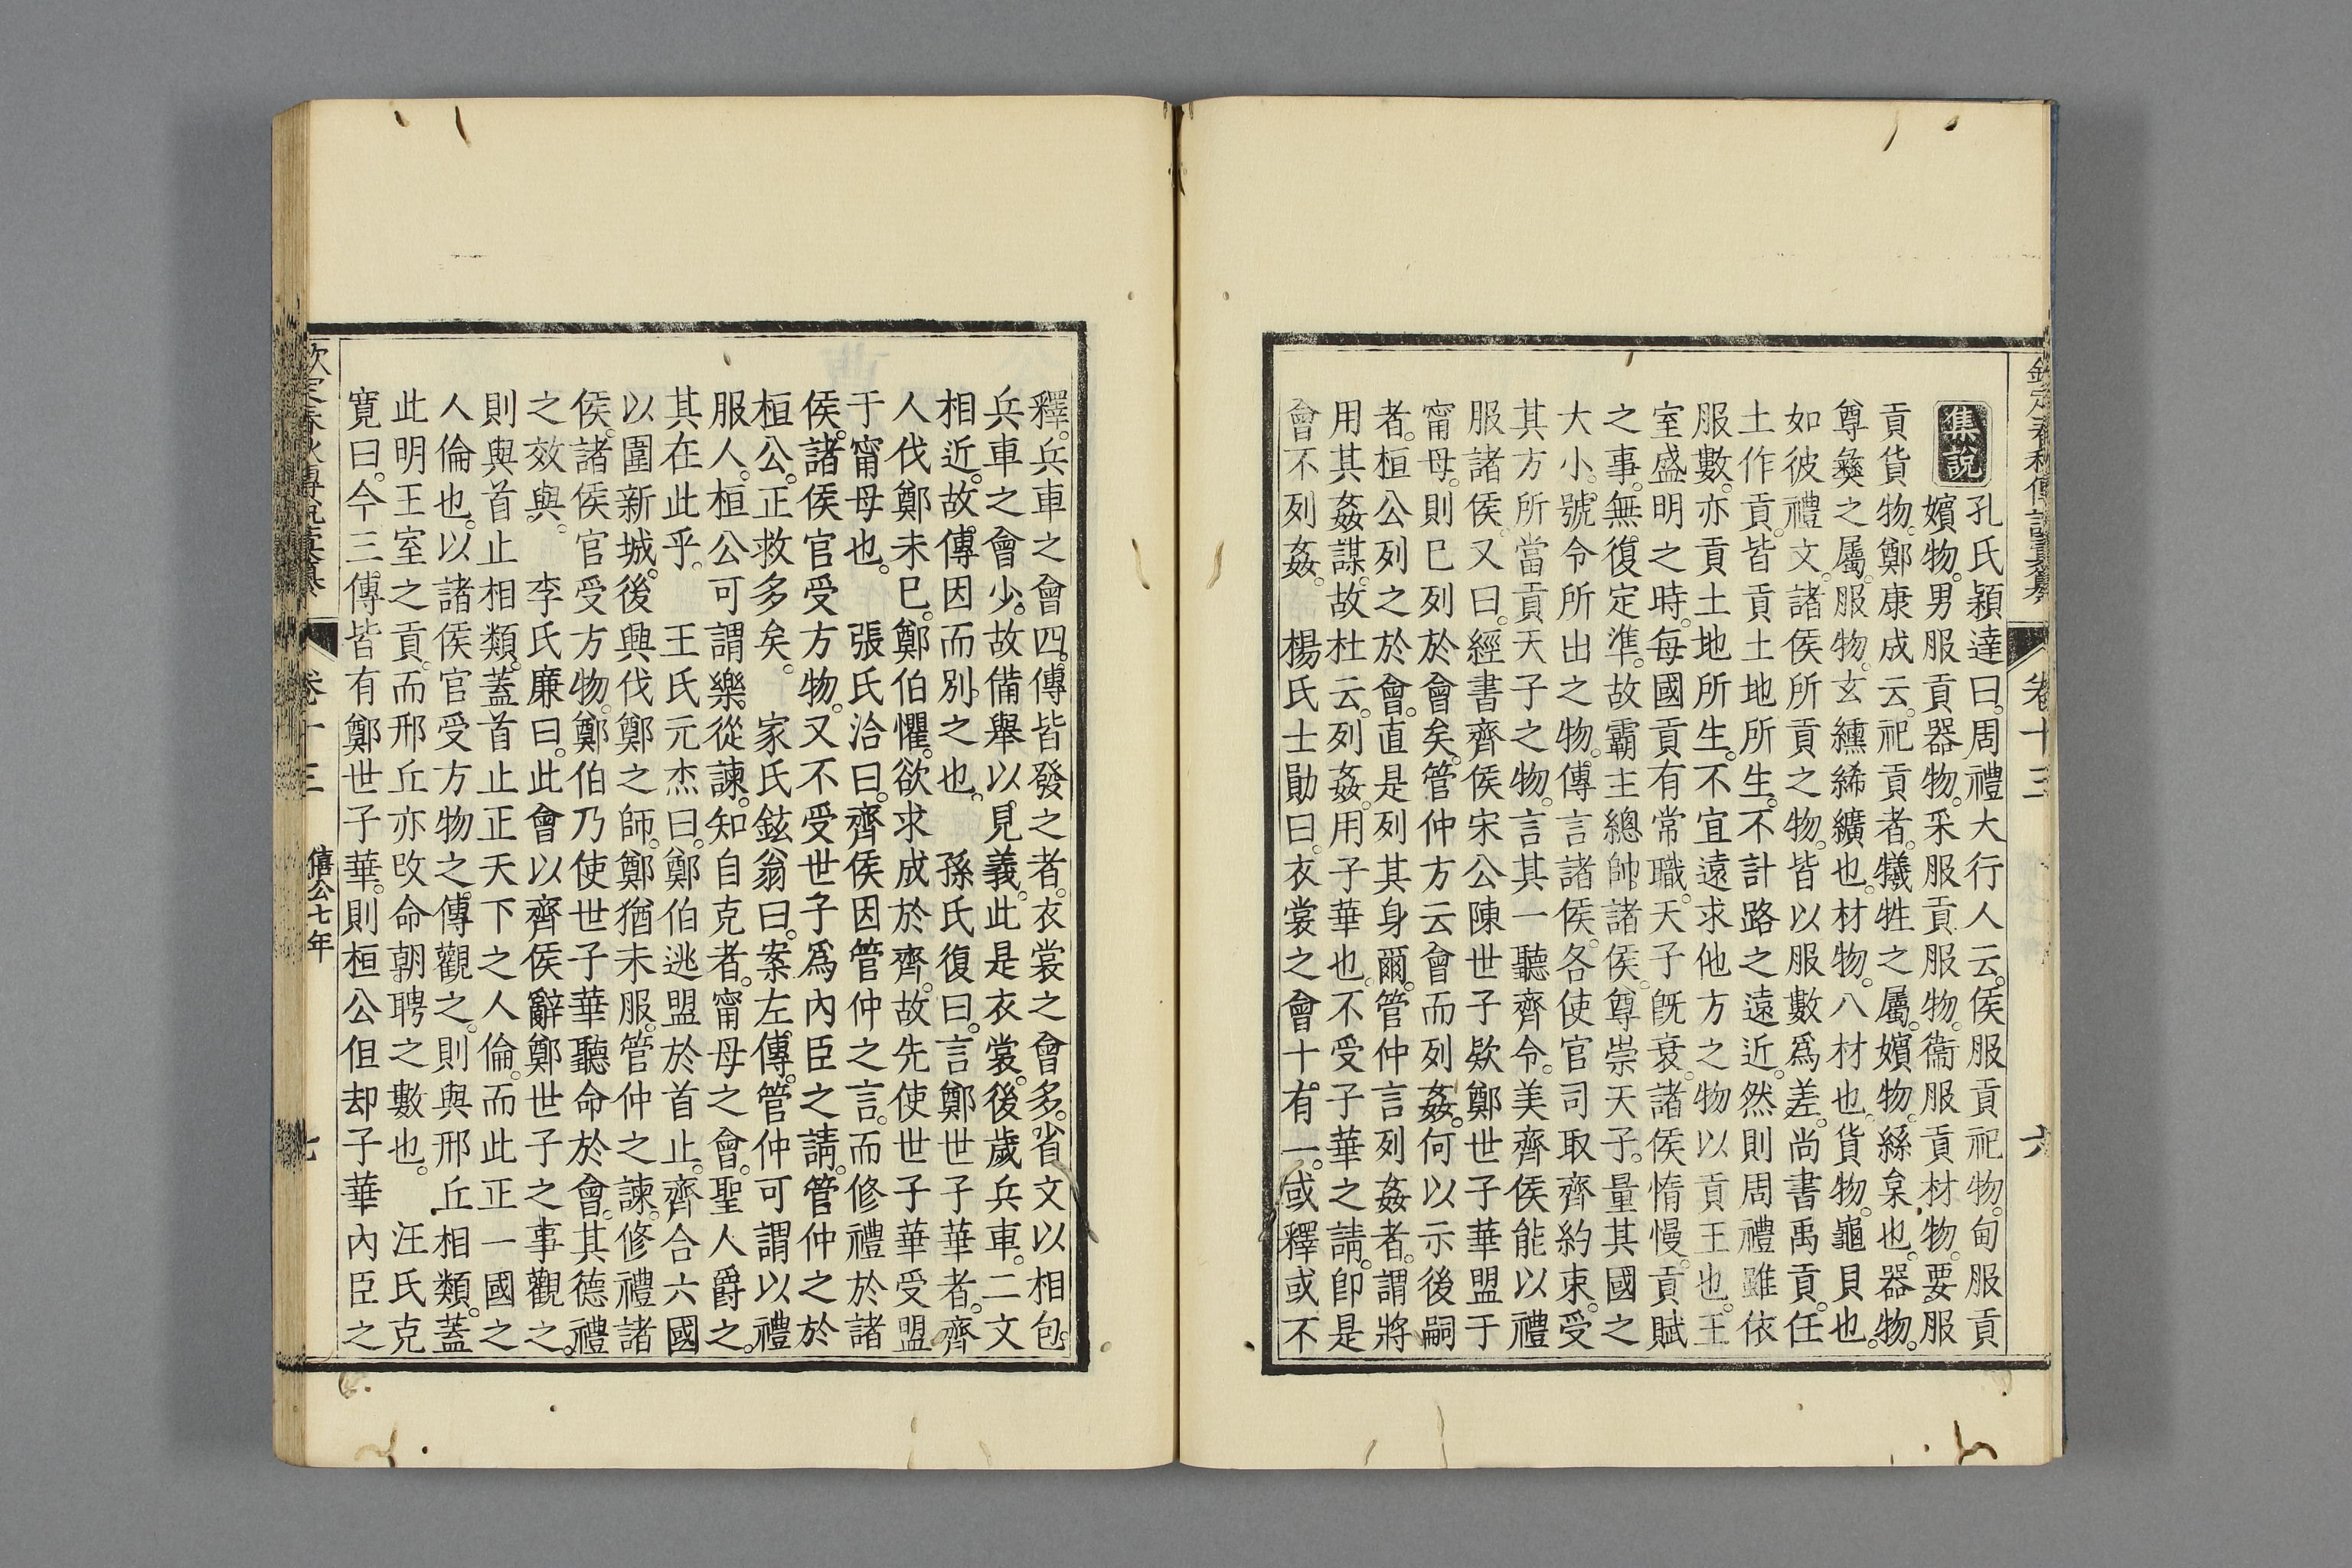 欽定春秋傳說彙纂 卷十三 六
集說
孔氏穎達曰。周禮大行人云。侯服貢祀物。甸服貢
嬪物。男服貢器物。采服貢服物。衞服貢材物。要服
貢貨物。鄭康成云。祀貢者。犧牲之屬。嬪物。絲枲也。器物。
尊彝之屬。服物。玄纁絺纊也。材物。八材也。貨物。龜貝也。
如彼禮文。諸侯所貢之物。皆以服數爲差。尚書禹貢。任
土作貢。皆貢土地所生。不計路之遠近。然則周禮雖依
服數。亦貢土地所生。不宜遠求他方之物以貢王也。王
室盛明之時。每國貢有常職。天子旣衰。諸侯惰慢。貢賦
之事。無復定準。故霸主總帥諸侯。尊崇天子。量其國之
大小。號令所出之物。傳言諸侯。各使官司取齊約束。受
其方所當貢天子之物。言其一聽齊令。美齊侯能以禮
服諸侯。又曰。經書齊侯宋公陳世子欵鄭世子華盟于
甯母。則巳列於會矣。管仲方云會而列姦。何以示後嗣
者。桓公列之於會。直是列其身爾。管仲言列姦者。謂將
用其姦謀。故杜云。列姦。用子華也。不受子華之請。卽是
會不列姦。 楊氏士勛曰。衣裳之會十有一。或釋或不
釋。兵車之會四。傳皆發之者。衣裳之會多。省文以相包。
兵車之會少。故備舉以見義。此是衣裳。後歲兵車。二文
相近。故傳因而別之也。 孫氏復曰。言鄭世子華者。齊
人伐鄭未巳。鄭伯懼。欲求成於齊。故先使世子華受盟
于甯母也。 張氏洽曰。齊侯因管仲之言。而修禮於諸
侯。諸侯官受方物。又不受世子爲內臣之請。管仲之於
桓公。正救多矣。 家氏鉉翁曰。案左傳。管仲可謂以禮
服人。桓公可謂樂從諫。知自克者。甯母之會。聖人爵之。
其在此乎。 王氏元杰曰。鄭伯逃盟於首止。齊合六國
以圍新城。後興伐鄭之師。鄭猶未服。管仲之諫。修禮諸
侯。諸侯官受方物。鄭伯乃使世子華聽命於會。其德禮
之效與。 李氏廉曰。此會以齊侯辭鄭世子之事觀之。
則與首止相類。蓋首止正天下之人倫。而此正一國之
人倫也。以諸侯官受方物之傳觀之。則與邢丘相類。蓋
此明王室之貢。而邢丘亦改命朝聘之數也。 汪氏克
寬曰。今三傳皆有鄭世子華。則桓公但却子華內臣之
欽定春秋傳說彙纂 卷十三 僖公七年 七